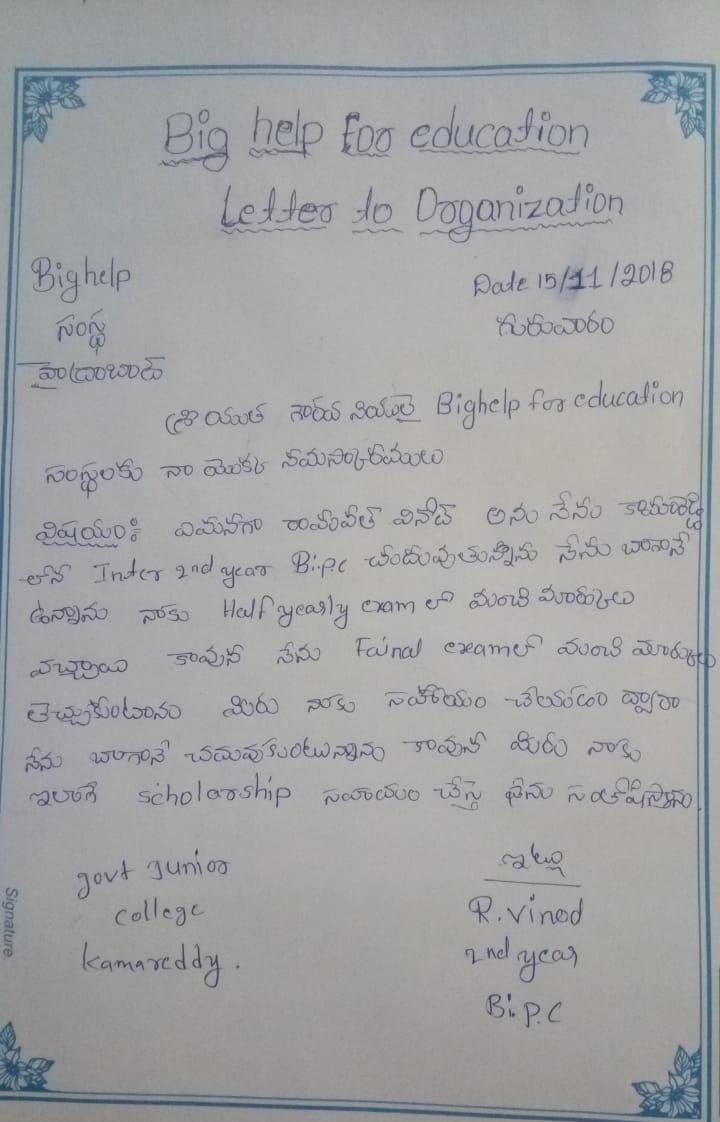 Big help For education
Letter to Organization
Bighelp
Date 15/11/2018
సంస్థ
గురువారం
హైద్రాబాద్
శ్రీ యుత గౌరవ నియులై Bighelp for education
సంస్థలకు నా యొక్క నమస్కారములు
విషయం: ఎమనగా రామవత్ వినోద్ అను నేను కామారెడ్డి
లోనే Inter 2nd year Bi.p.c చందువుతున్నాను నేను బాగానే
ఉన్నాను నాకు Half yearly exam లో మంచి మార్కులు
వచ్చాయి కావున నేను Fainal examలో మంచి మార్కులు
తెచ్చుకుంటాను మీరు నాకు సహాయం చేయండం ద్వారా
నేను బాగానే చదువుకుంటున్నాను కావున మీరు నాకు
ఇలాగే scholarship సహాయం చేస్తె నేను సంతోషిస్తాను.
govt Junior
college
kamareddy.
ఇట్లు
R.vinod
2nd year
Bi.P.C
Signature.